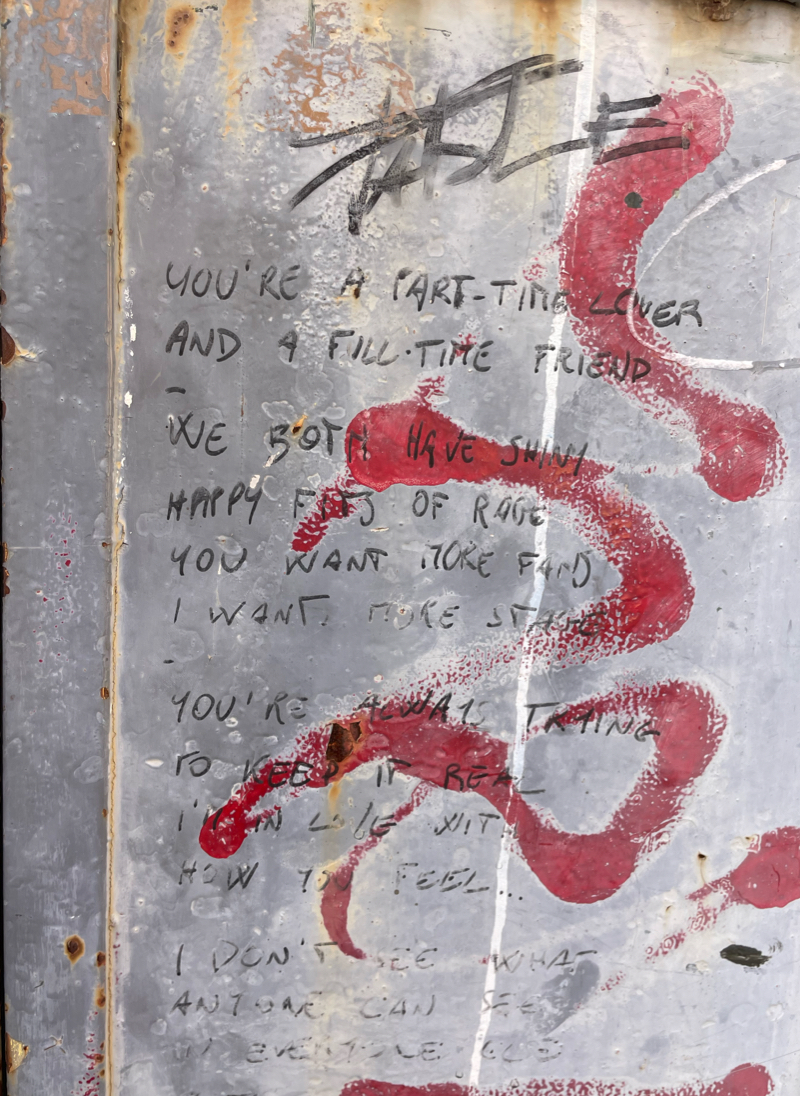 YOU'RE A PART-TIME LOVER
AND A FULL-TIME FRIEND
-
WE BOTH HAVE SHINY
HAPPY FITS OF RAGE
YOU WANT MORE FANS
I WANT MORE STAGE
-
YOU'RE ALWAYS TRYING
TO KEEP IT REAL
I'M IN LOVE WIT
HOW YOU FEEL...
I DON'T SEE WHAT
ANYONE CAN SEE
IN EVERYONE ELSE